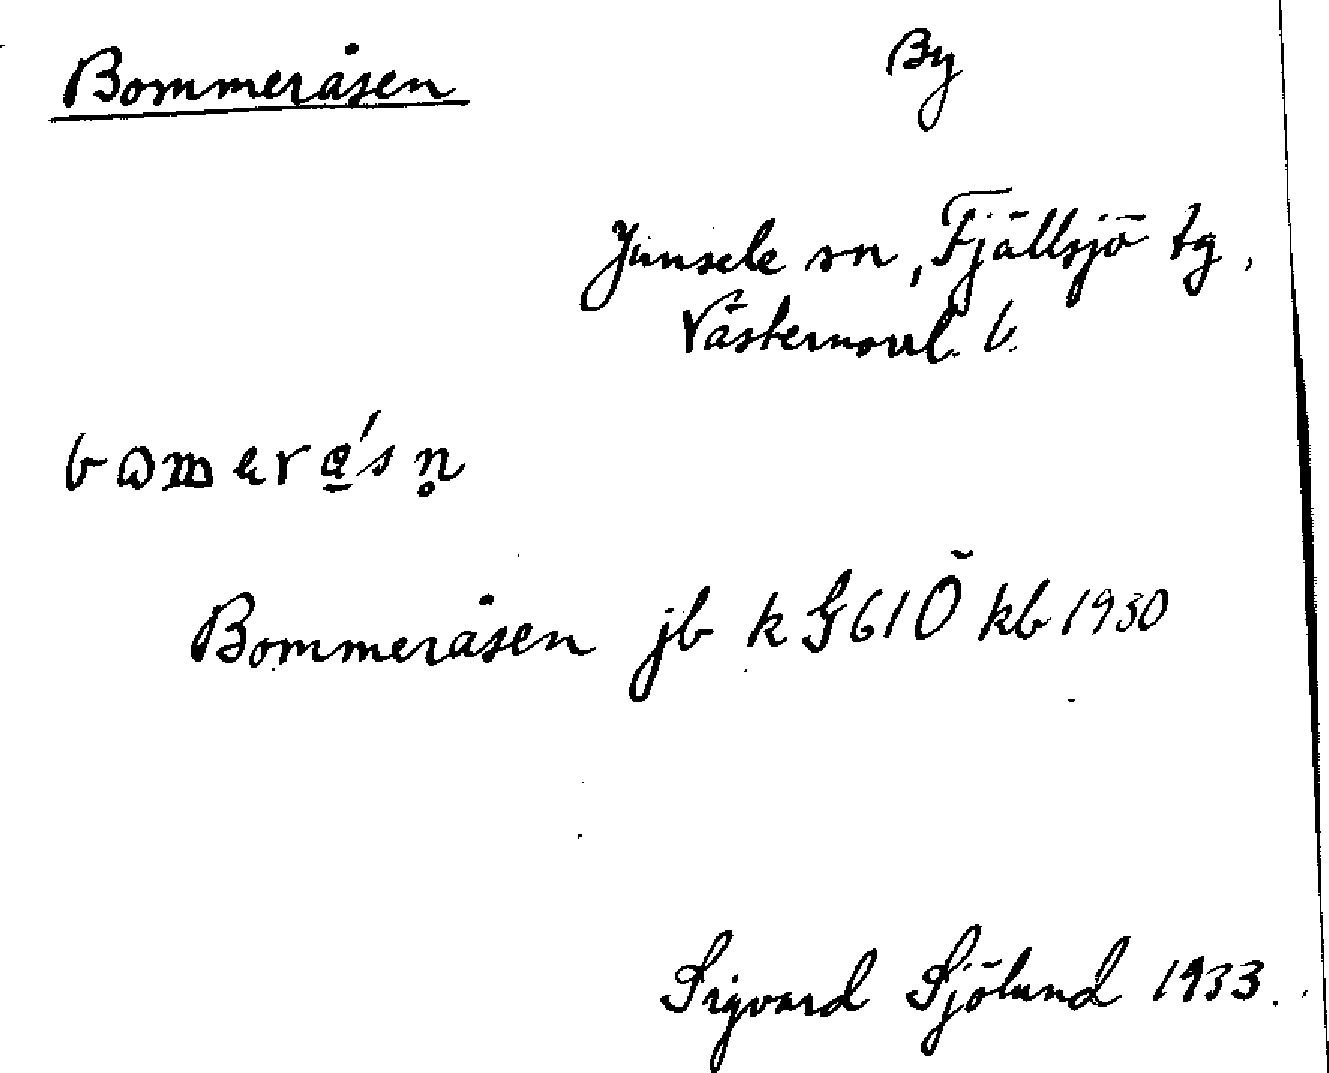 Bommeråsen By
Junsele sn, Fjällsjö tg,
Västernorrl. l.
Bommeråsen jb k G61Ö kb 1930
Sigvard Sjölund 1933.